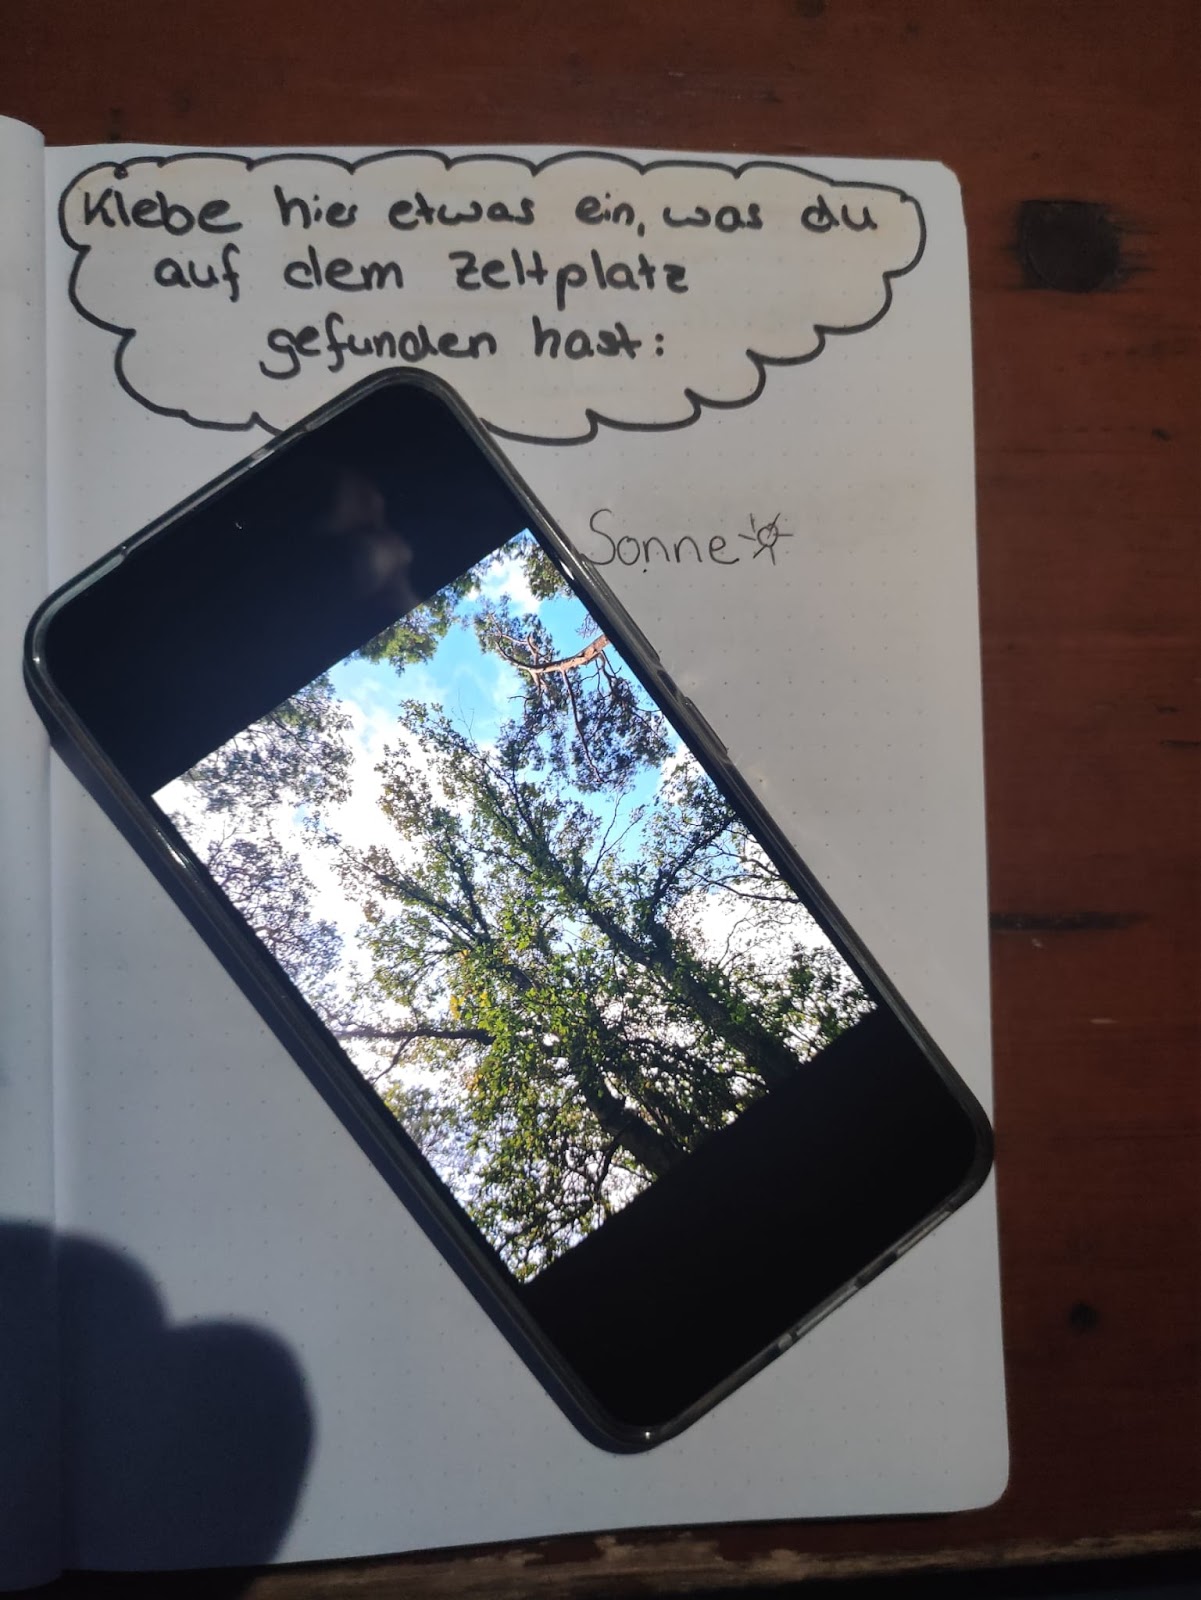 Klebe hier etwas ein, was du
auf dem Zeltplatz
gefunden hast:
Sonne